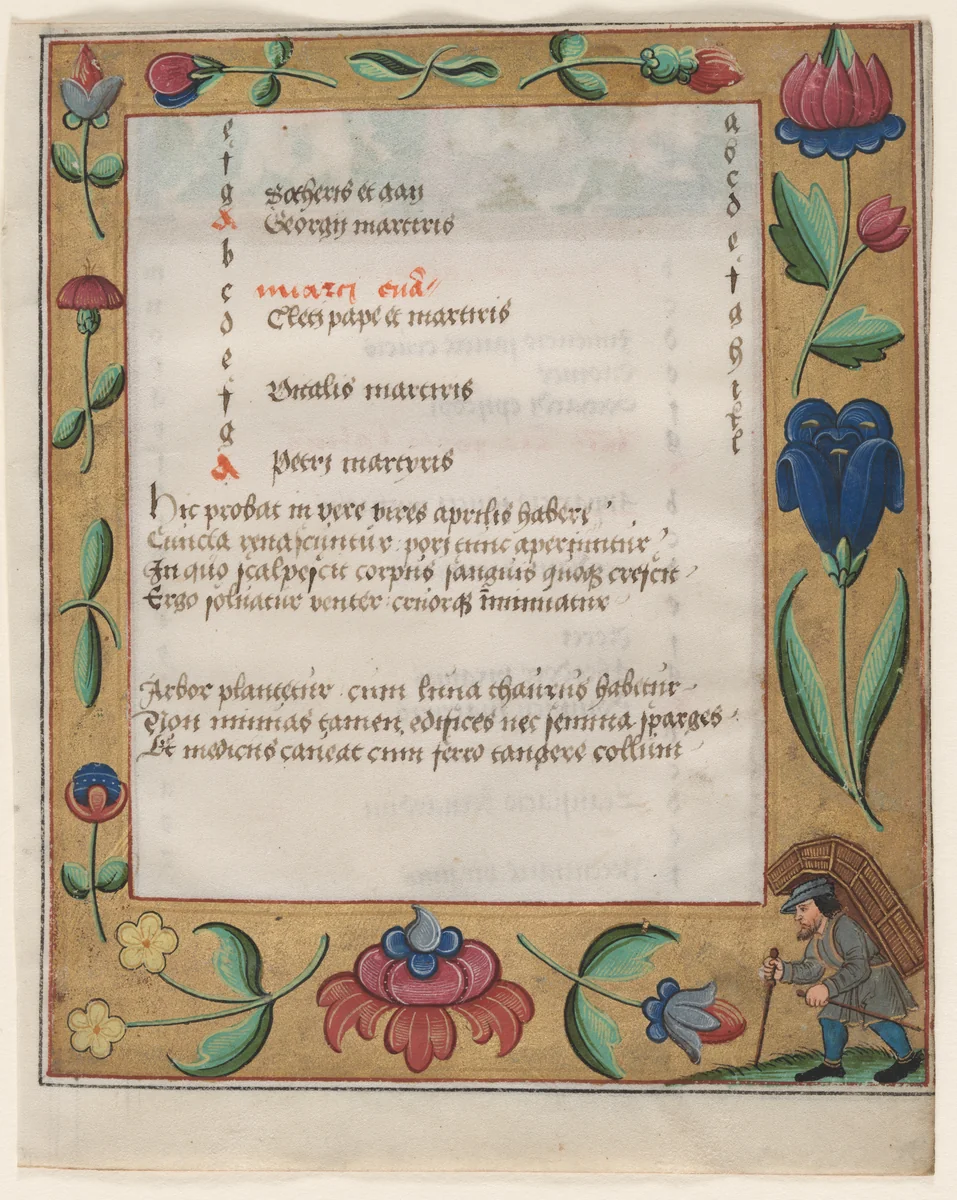 e
f
g Sotheris et gay
A Georgij martiris
b
c marci eua
d Cleti pape et martiris
e
f Vitalis martiris
g
A Petri martyris
a
b
c
d
e
f
g
h
i
k
l
Hic probat in vere vires aprilis habere
Cuncta renascuntur pori tunc aperiuntur
In quo scalpescit corpus sanguis quoqꝫ crescit
Ergo soluatur venter cruorqꝫ īminuatur
Arbor plantetur cum luna thaurus habetur
Non minuas tamen edifices nec semina sparges
Et medicus caueat cum ferro tangere collum